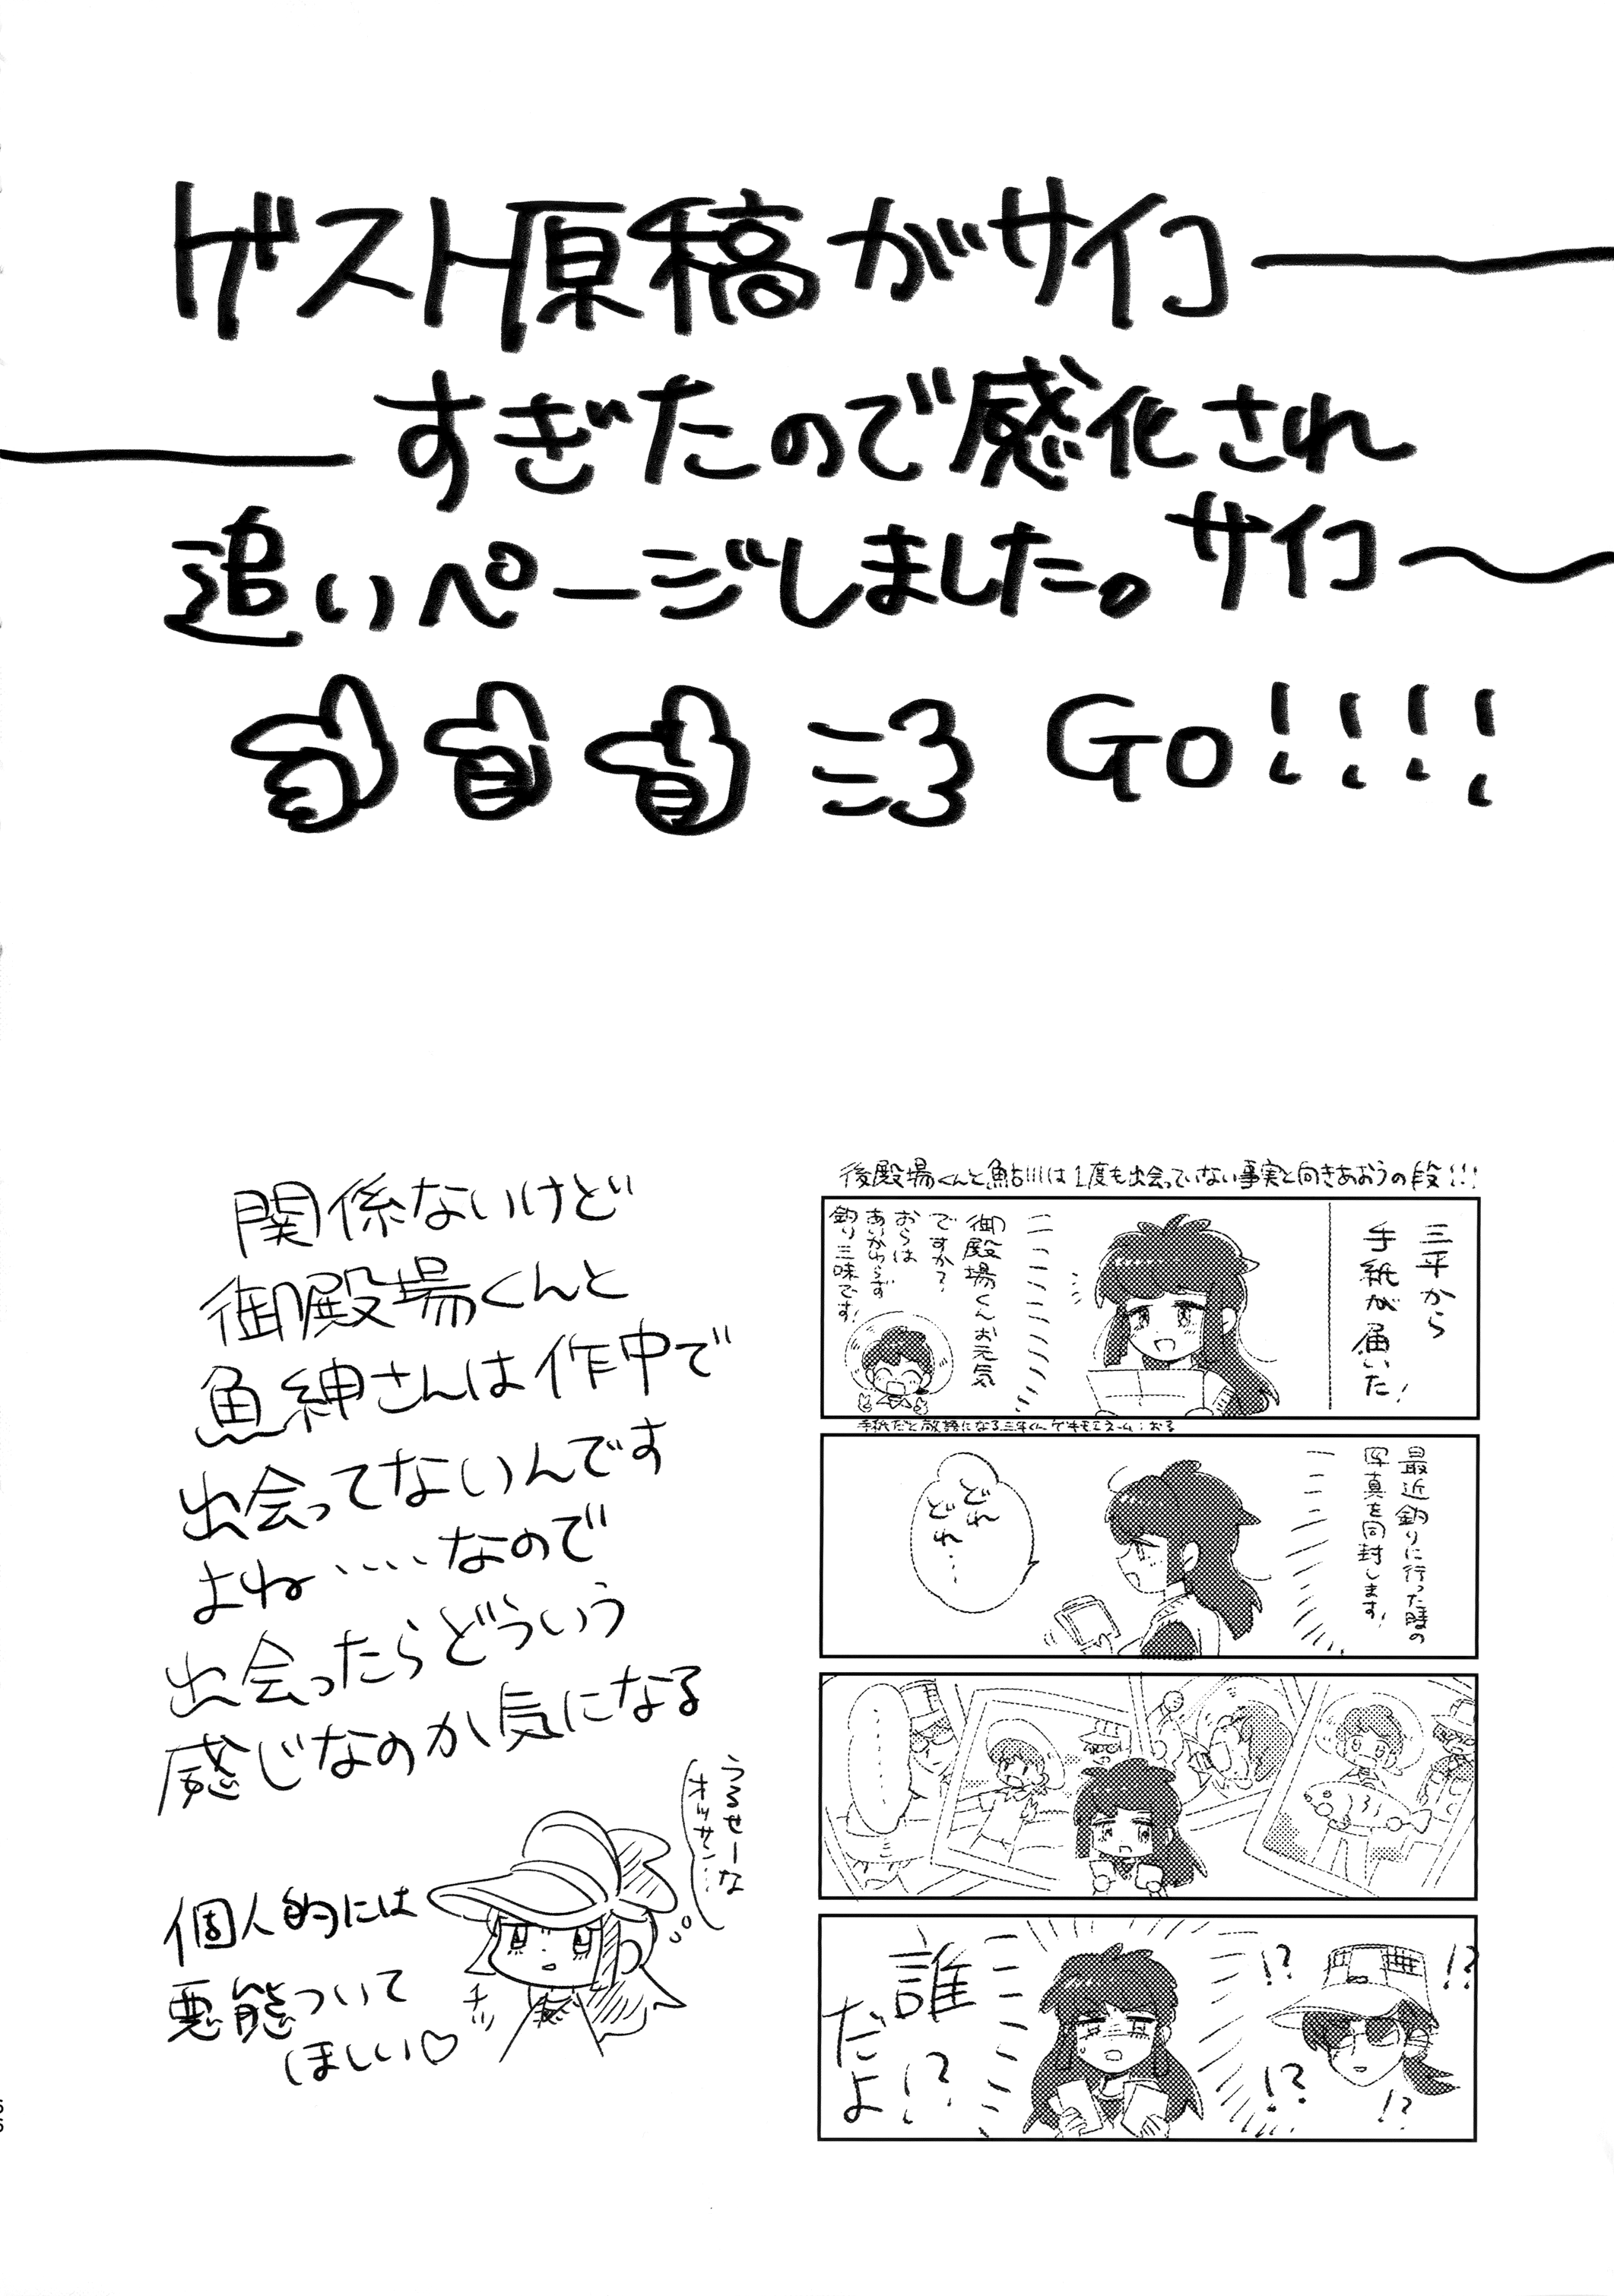 ゲスト原稿がサイコー
ーすぎたので感化され
追いページしました。サイコ〜
Go!!!!
後殿場くんと鮎川は1度も出会っていない事実と向きあおうの段!!!
三平から
手紙が届いた!
御殿場くんお元気
ですか?
おらは
あいかわらず
釣り三昧です!
手紙だと敬語になる三平くん
最近釣りに行った時の
写真を同封します!
どれ
どれ…
……
誰
だよ!?
!?
!?
!?
!?
関係ないけど
御殿場くんと
魚紳さんは作中で
出会ってないんです
よね‥‥なので
出会ったらどういう
感じなのか気になる
うるせーな
オッサン…
チッ
個人的には
悪態ついて
ほしい♡